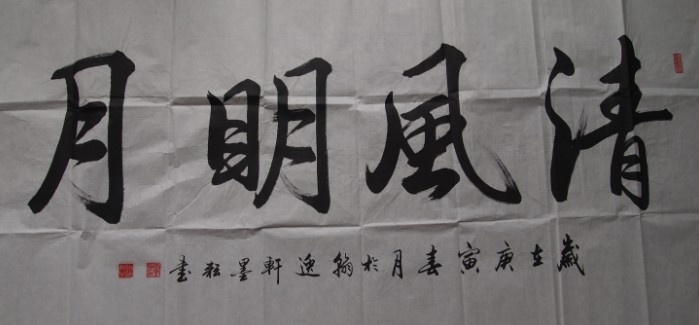 清風明月
歲在庚寅春月於翰逸軒墨粧書